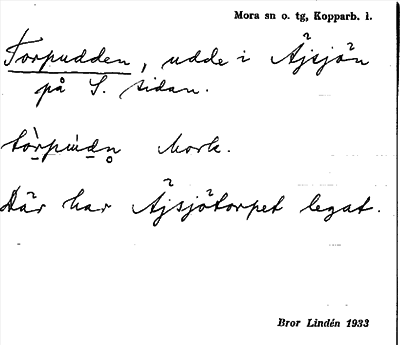 Mora sn o. tg, Kopparb. l.
Torpudden, udde i Ajsjön
på S. sidan.
tòrpúdn̥ Mork.
Där har Ajsjötorpet legat.
Bror Lindén 1933